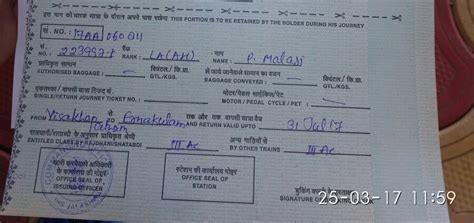 इस भाग को धारक यात्रा के दौरान अपने पास रखेगा THIS PORTION IS TO BE RETAINED BY THE HOLDER DURING HIS JOURNEY
सं. NO. : 17AA 060
सं. NO. : रैंक RANK : LA(AH) नाम NAME : P. Malasi
प्राधिकृत सामान AUTHORISED BAGGAGE : क्विंटल/कि.ग्रा. QTL/KGS. से जाये जानेवाले सामान का वजन BAGGAGE CONVEYED : क्विंटल/कि.ग्रा. QTL/KGS.
एकतरफा/वापसी यात्रा टिकट सं. SINGLE/RETURN JOURNEY TICKET NO. : मोटर/पैडल साईकिल/पेट MOTOR / PEDAL CYCLE / PET :
से FROM Visakhapatnam को TO Ernakulam तक और तक वापसी यात्रा वैध AND RETURN VALID UPTO 31 Jul 17
राजधानी/शताब्दी के अनुसार प्राधिकृत श्रेणी ENTITLED CLASS BY RAJDHANI/SHATABDI III AC अन्य गाड़ियों से BY OTHER TRAINS : III AC
जारी करनेवाले अधिकारी की कार्यालय मोहर OFFICE SEAL OF ISSUING OFFICER
स्टेशन की कार्यालय मोहर OFFICE SEAL OF STATION
25-03-17 11:59